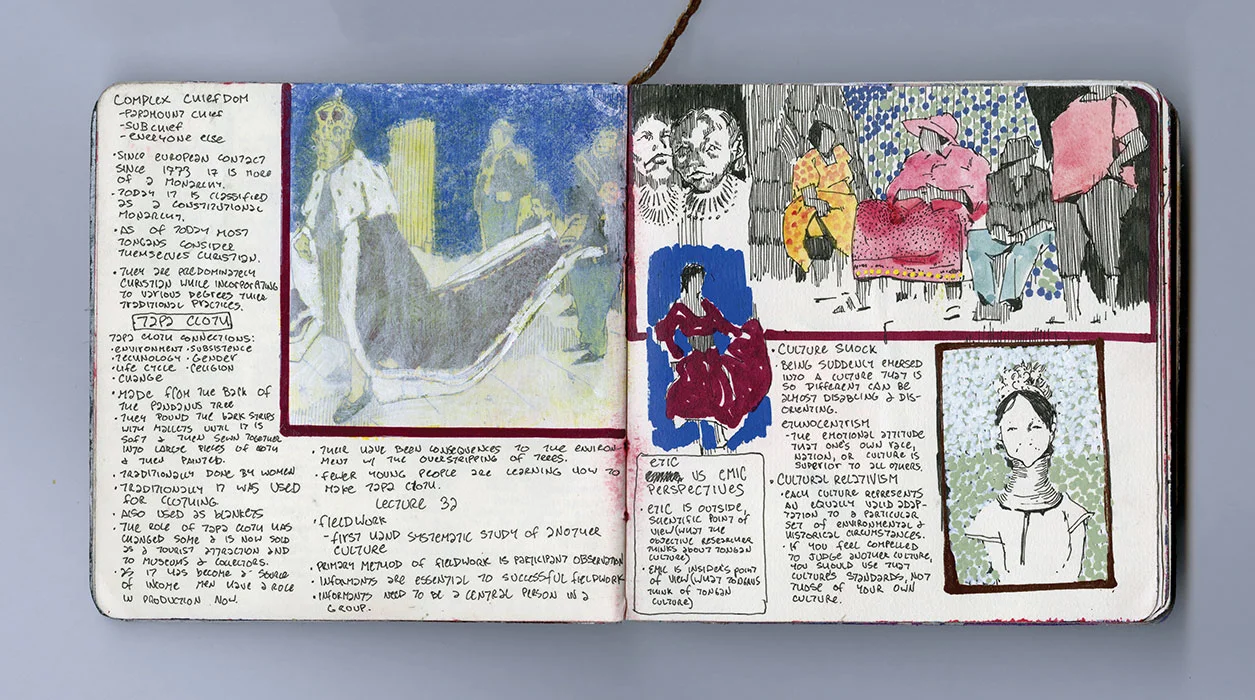 COMPLEX CHIEFDOM
-PARAMOUNT CHIEF
-SUB CHIEF
-EVERYONE ELSE
•SINCE EUROPEAN CONTACT
SINCE 1773 IT IS MORE
OF A MONARCHY.
•TODAY IT IS CLASSIFIED
AS A CONSTITUTIONAL
MONARCHY.
•AS OF TODAY MOST
TONGANS CONSIDER
THEMSELVES CHRISTIAN.
•THEY ARE PREDOMINATELY
CHRISTIAN WHILE INCORPORATING
TO VARIOUS DEGREES THEIR
TRADITIONAL PRACTICES.
TAPA CLOTH
TAPA CLOTH CONNECTIONS:
•ENVIRONMENT •SUBSISTENCE
•TECHNOLOGY •GENDER
•LIFE CYCLE •RELIGION
•CHANGE
•MADE FROM THE BARK OF
THE PANDANUS TREE
•THEY POUND THE BARK STRIPS
WITH MALLETS UNTIL IT IS
SOFT & THEN SEWN TOGETHER
INTO LARGE PIECES OF
& THEN PAINTED.
•TRADITIONALLY DONE BY WOMEN
•TRADITIONALLY IT WAS USED
FOR CLOTHING
•ALSO USED AS BLANKETS
•THE ROLE OF TAPA CLOTH HAS
CHANGED SOME & IS NOW SOLD
AS A TOURIST ATTRACTION AND
TO MUSEUMS & COLLECTORS.
•AS IT HAS BECOME A SOURCE
OF INCOME MEN HAVE A ROLE
IN PRODUCTION NOW.
•THEIR HAVE BEEN CONSEQUENCES TO THE ENVIRON-
MENT W/ THE OVERSTRIPPING OF TREES.
•FEWER YOUNG PEOPLE ARE LEARNING HOW TO
MAKE TAPA CLOTH.
LECTURE 32
•FIELDWORK
-FIRST HAND SYSTEMATIC STUDY OF ANOTHER
CULTURE
•PRIMARY METHOD OF FIELDWORK IS PARTICIPANT OBSERVATION
•INFORMANTS ARE ESSENTIAL TO SUCCESSFUL FIELDWORK
•INFORMANTS NEED TO BE A CENTRAL PERSON IN A
GROUP.
ETIC
VS EMIC
PERSPECTIVES
•ETIC IS OUTSIDE,
SCIENTIFIC POINT OF
VIEW (WHAT THE
OBJECTIVE RESEARCHER
THINKS ABOUT TONGAN
CULTURE)
•EMIC IS INSIDERS POINT
OF VIEW (WHAT TONGANS
THINK OF TONGAN
CULTURE)
•CULTURE SHOCK
•BEING SUDDENLY EMERSED
INTO A CULTURE THAT IS
SO DIFFERENT CAN BE
ALMOST DISABLING & DIS-
ORIENTING.
ETHNOCENTRISM
-THE EMOTIONAL ATTITUDE
THAT ONE'S OWN RACE,
NATION, OR CULTURE IS
SUPERIOR TO ALL OTHERS.
•CULTURAL RELATIVISM
•EACH CULTURE REPRESENTS
AN EQUALLY VALID ADAP-
TATION TO A PARTICULAR
SET OF ENVIRONMENTAL &
HISTORICAL CIRCUMSTANCES.
•IF YOU FEEL COMPELLED
TO JUDGE ANOTHER CULTURE,
YOU SHOULD USE THAT
CULTURE'S STANDARDS, NOT
THOSE OF YOUR OWN
CULTURE.